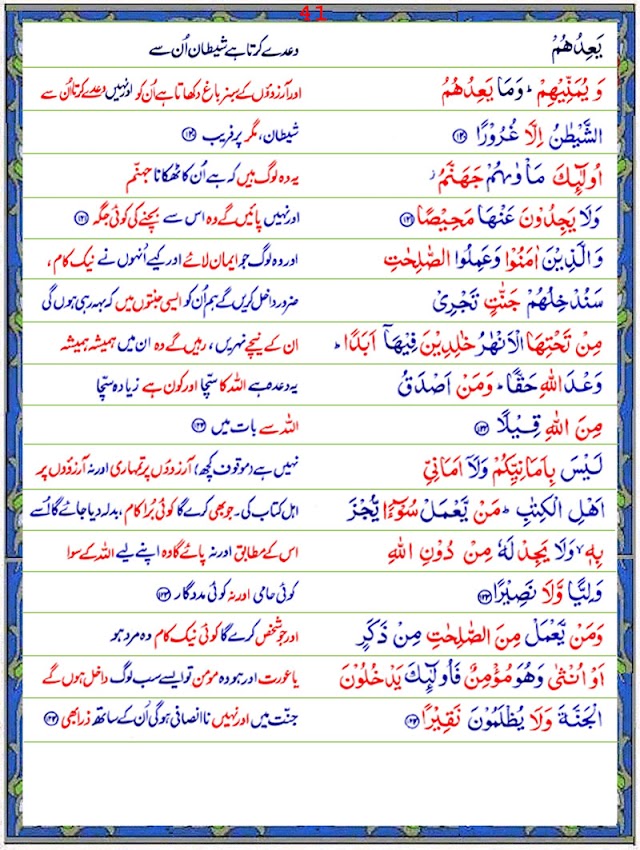 41
يَعِدُهُمْ وعدے کرتا ہے شیطان اُن سے
وَيُمَنِّيْهِمْ ۚ وَمَا يَعِدُهُمُ اور آرزوؤں کے سبز باغ دکھاتا ہے اُن کو اور نہیں وعدے کرتا اُن سے
الشَّيْطٰنُ اِلَّا غُرُوْرًا ﴿۱۲۰﴾ شیطان، مگر پُر فریب ﴿۱۲۰﴾
اُولٰٓئِكَ مَاْوٰىهُمْ جَهَنَّمُ ۡ یہ وہ لوگ ہیں کہ ہے اُن کا ٹھکانا جہنّم
وَلَا يَجِدُوْنَ عَنْهَا مَحِيْصًا ﴿۱۲۱﴾ اور نہیں پائیں گے وہ اس سے بچنے کی کوئی جگہ ﴿۱۲۱﴾
وَالَّذِيْنَ اٰمَنُوْا وَعَمِلُوا الصّٰلِحٰتِ اور وہ لوگ جو ایمان لائے اور کیے اُنہوں نے نیک کام،
سَنُدْخِلُهُمْ جَنّٰتٍ تَجْرِيْ ضرور داخل کریں گے ہم اُن کو ایسی جنتوں میں کہ بہہ رہی ہوں گی
مِنْ تَحْتِهَا الْاَنْهٰرُ خٰلِدِيْنَ فِيْهَآ اَبَدًا ۚ ان کے نیچے نہریں، رہیں گے وہ ان میں ہمیشہ ہمیشہ
وَعْدَ اللّٰهِ حَقًّا ۚ وَمَنْ اَصْدَقُ یہ وعدہ ہے اللہ کا سچّا اور کون ہے زیادہ سچّا
مِنَ اللّٰهِ قِيْلًا ﴿۱۲۲﴾ اللہ سے بات میں ﴿۱۲۲﴾
لَيْسَ بِاَمَانِيِّكُمْ وَلَآ اَمَانِيِّ نہیں ہے (موقوف کچھ) آرزوؤں پر تمہاری اور نہ آرزوؤں پر
اَهْلِ الْكِتٰبِ ۚ مَنْ يَّعْمَلْ سُوْٓءًا يُّجْزَ اہل کتاب کی۔ جو بھی کرے گا کوئی بُرا کام، بدلہ دیا جائے گا اُسے
بِهٖ ۙ وَلَا يَجِدْ لَهٗ مِنْ دُوْنِ اللّٰهِ اس کے مطابق اور نہ پائے گا وہ اپنے لیے اللہ کے سوا
وَلِيًّا وَّلَا نَصِيْرًا ﴿۱۲۳﴾ کوئی حامی اور نہ کوئی مددگار ﴿۱۲۳﴾
وَمَنْ يَّعْمَلْ مِنَ الصّٰلِحٰتِ مِنْ ذَكَرٍ اور جو شخص کرے گا کوئی نیک کام وہ مرد ہو
اَوْ اُنْثٰى وَهُوَ مُؤْمِنٌ فَاُولٰٓئِكَ يَدْخُلُوْنَ یا عورت اور ہو وہ مومن تو ایسے سب لوگ داخل ہوں گے
الْجَنَّةَ وَلَا يُظْلَمُوْنَ نَقِيْرًا ﴿۱۲۴﴾ جنّت میں اور نہیں ناانصافی ہوگی اُن کے ساتھ ذرا بھی ﴿۱۲۴﴾